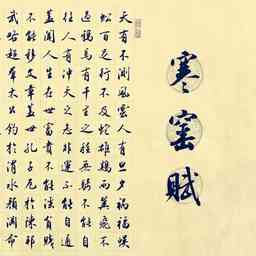 寒窰賦
天有不測風雲人有旦夕禍福蜈
蚣百足行不及蛇雄鷄兩翼飛不
過鴉馬有千里之程無騎不能自
往人有沖天之志非運不能自通
蓋聞人生在世富貴不能淫貧賤
不能移文章蓋世孔子厄於陳邦
武略超群太公釣於渭水顏淵命